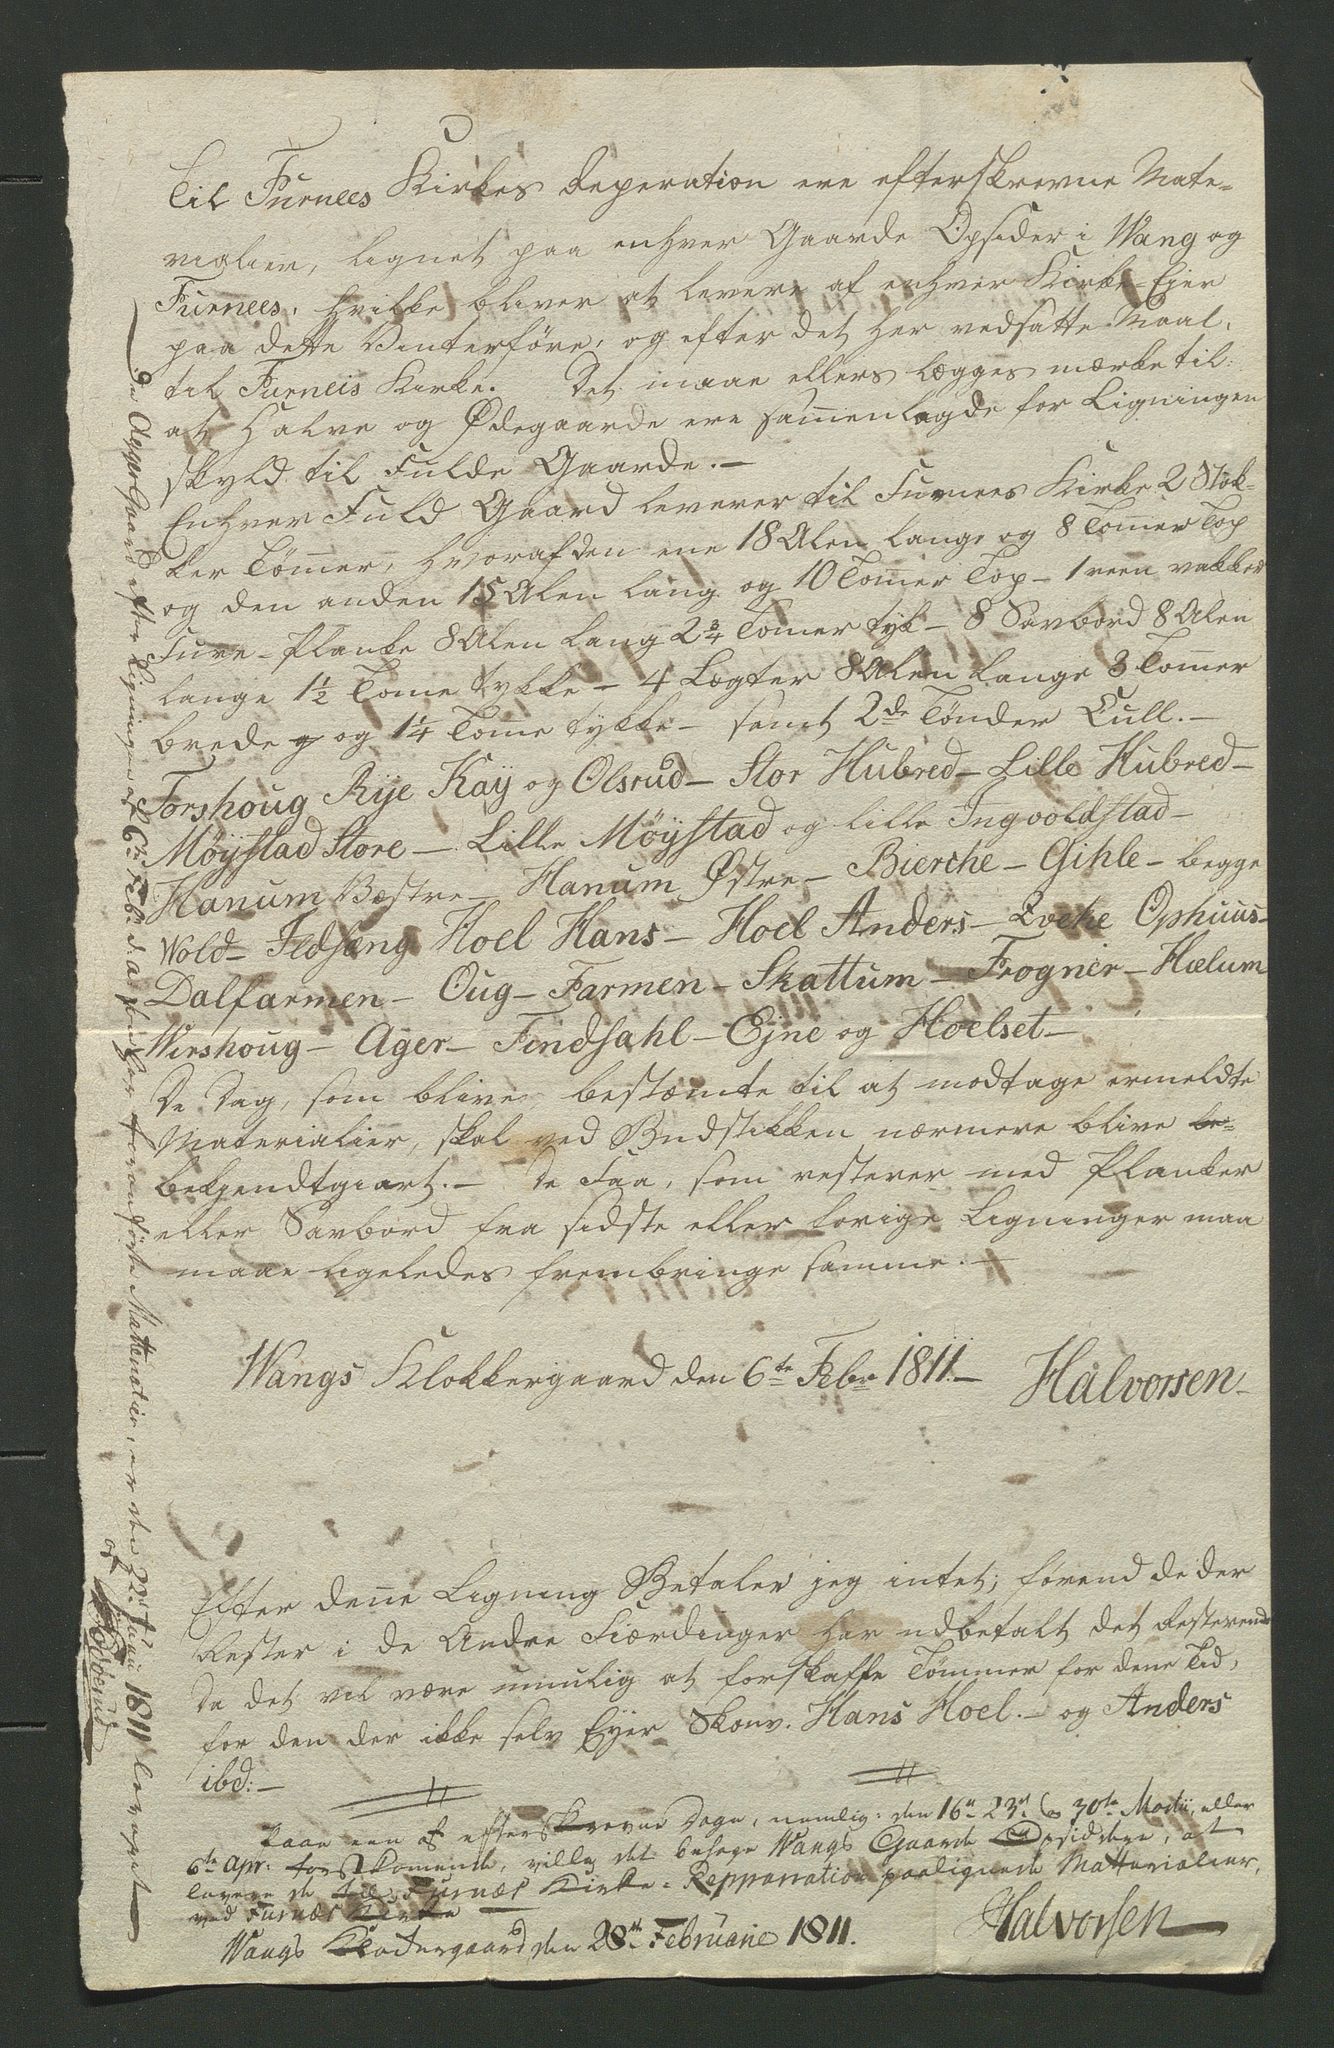 Til Furnees Kirkes Reperation ere efterskrevne Mate-
rialier, lignet paa enhver Gaarde Opsider i Wang og
Furnees, hvilke bliver at levere af enhver Kirke-Ejer
paa dette Vinterføre, og efter det her vedsatte Maal,
til Furneis Kirke. Det maae ellers lægges mærke til:
at Halve og Ødegaarde ere sam̄enlagde for Ligningen
skyld til Fulde Gaarde.—
Enhver Fuld Gaard leverer til Furnees Kirke 2 Stok-
ker Tøm̄er, hvoraf den ene 18 Alen lange og 8 Tom̄er Top
og den anden 15 Alen lang og 10 Tom̄er Top — 1 reen vakker
Fure-Planke 8 Alen lang 2¾ Tom̄er tyk — 8 Savbord 8 Alen
lange 1½ Tom̄e tykke — 4 Lægter 8 Alen lange 3 Tom̄er
brede og 1¼ Tom̄e tykke — samt 2de Tønder Cull.—
Forshoug Rije Kaÿ og Olsrud — Stor Hubred — Lille Hubred —
Møÿstad Store — Lille Møÿstad og lille Ingvoldstad —
Hanum Væstre — Hanum Østre — Bierche — Gihle — begge
Wold — Ildsæng Hoel Hans — Hoel Anders — Qveke Ophuus —
Dalfarmen — Oug — Farmen — Skattum — Frogner — Hælum
Wirshoug — Ager — Findsahl — Ejne og Hoelset —
De Dag, som blive bestæmte til at modtage ermeldte
Materialier, skal ved Budstikken nærmere blive be-
bekjendtgiørt.— De Faa, som resterer med Planker
eller Savbord fra sidste eller forige Ligninger maa
maae ligeledes frembringe samme.—
Wangs Klokkergaard den 6te Febr 1811.— Halvorsen
Efter den̄e Ligning Betaler jeg intet, førend de der
Rester i de Andre Fiærdinger har udbetalt det Resterende
Da det vil være umulig at forskaffe Tømmer for den̄e Tid,
for den der ikke selv Eyer Skouv. Hans Hoel.— og Anders
ibd:—
Paa een af efterskrevne Dage, nemlig: den 16de 23de & 30te Martii, eller
6te Apr: førstkomende, ville det behage Wangs Gaarde Opsiddere, at
levere de til Furnæs Kirke-Repparation paalignede Matterialier,
ved Furnæs Kirke
Wangs Klokergaard den 28de Februarie 1811. Halvorsen
efter Ligningen af 6te Feb: d. a. anførte Matterialier, er den 22de Juni 1811 leveret
af